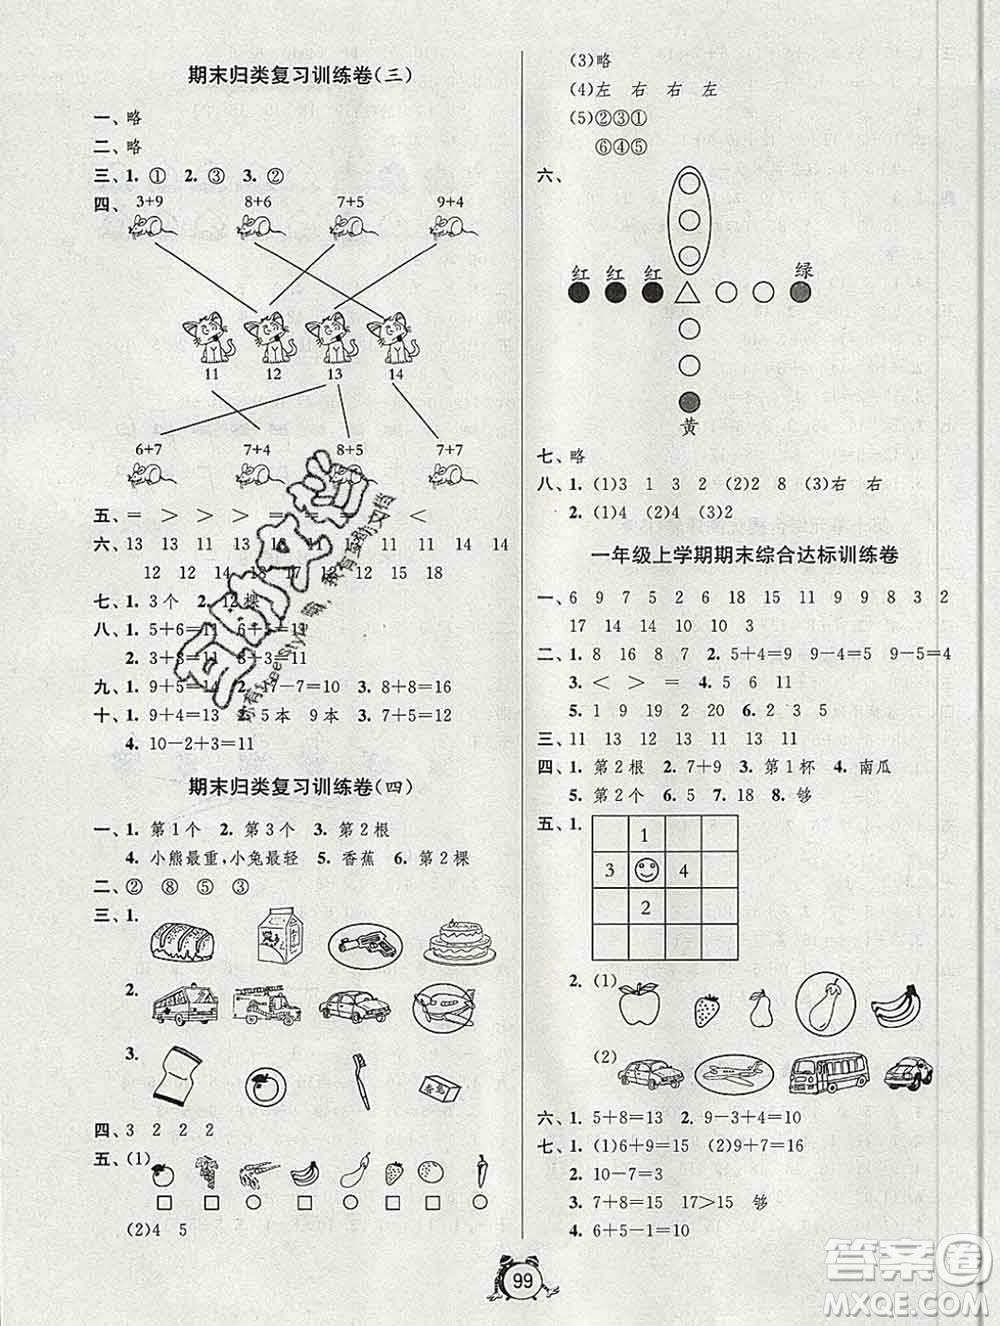 期末归类复习训练卷(三)
一、略
二、略
三、1. ① 2. ③ 3. ②
四、 3+9 8+6 7+5 9+4
11 12 13 14
6+7 7+4 8+5 7+7
五、= > > > = <
六、13 13 14 11 11 11 14 14
12 12 18 14 13 12 15 18
七、1. 3个 2. 12棵
八、1. 5+6=11 6+5=11
2. 3+8=11 8+3=11
九、1. 9+5=14 2. 17-7=10 3. 8+8=16
十、1. 9+4=13 2. 5本 9本 3. 7+5=12
4. 10-2+3=11
期末归类复习训练卷(四)
一、1. 第1个 2. 第3个 3. 第2根
4. 小熊最重,小兔最轻 5. 香蕉 6. 第2棵
二、② ⑧ ⑤ ③
三、1.
2.
3.
四、3 2 2 2
五、(1)
(2)4 5
(3)略
(4)左 右 右 左
(5)②③①
⑥④⑤
六、
红 红 红 绿
黄
七、略
八、1. (1)3 1 3 2 (2)2 8 (3)右 右
2. (1)4 (2)4 (3)2
一年级上学期期末综合达标训练卷
一、6 9 7 5 2 6 18 15 9 9 8 3 2
17 14 14 10 10 3
二、1. 8 16 8 2. 5+4=9 9-4=5 9-5=4
3. < > = 4. 5 6 11
5. 1 9 19 2 20 6. 2 3 5
三、11 13 12 13 11 13 11
四、1. 第2根 2. 7+9 3. 第1杯 4. 南瓜
5. 第2个 6. 5 7. 18 8. 够
五、1.
1
3 4
2
2. (1)
(2)
六、1. 5+8=13 2. 9-3+4=10
七、1. (1)6+9=15 (2)9+7=16
2. 10-7=3
3. 7+8=15 17>15 够
4. 6+5-1=10
99
答案圈
MXQE.COM